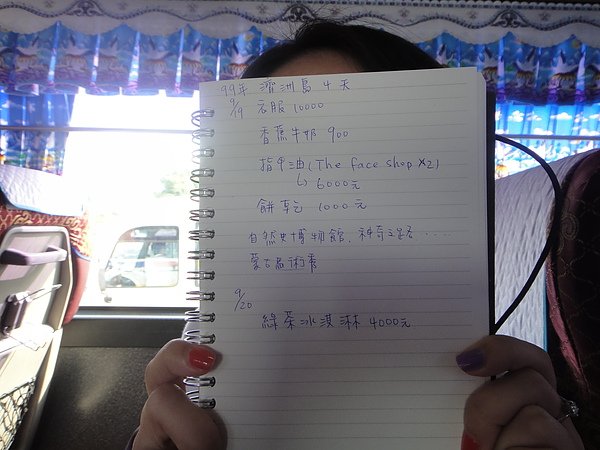 99年 濟洲島 4天
9/19 衣服 10000
香蕉牛奶 900
指甲油(The face shop x2)
↳ 6000元
餅乾 1000元
自然史博物館、神奇之路、.....
蒙古馬術秀
9/20
綠茶冰淇淋 4000元